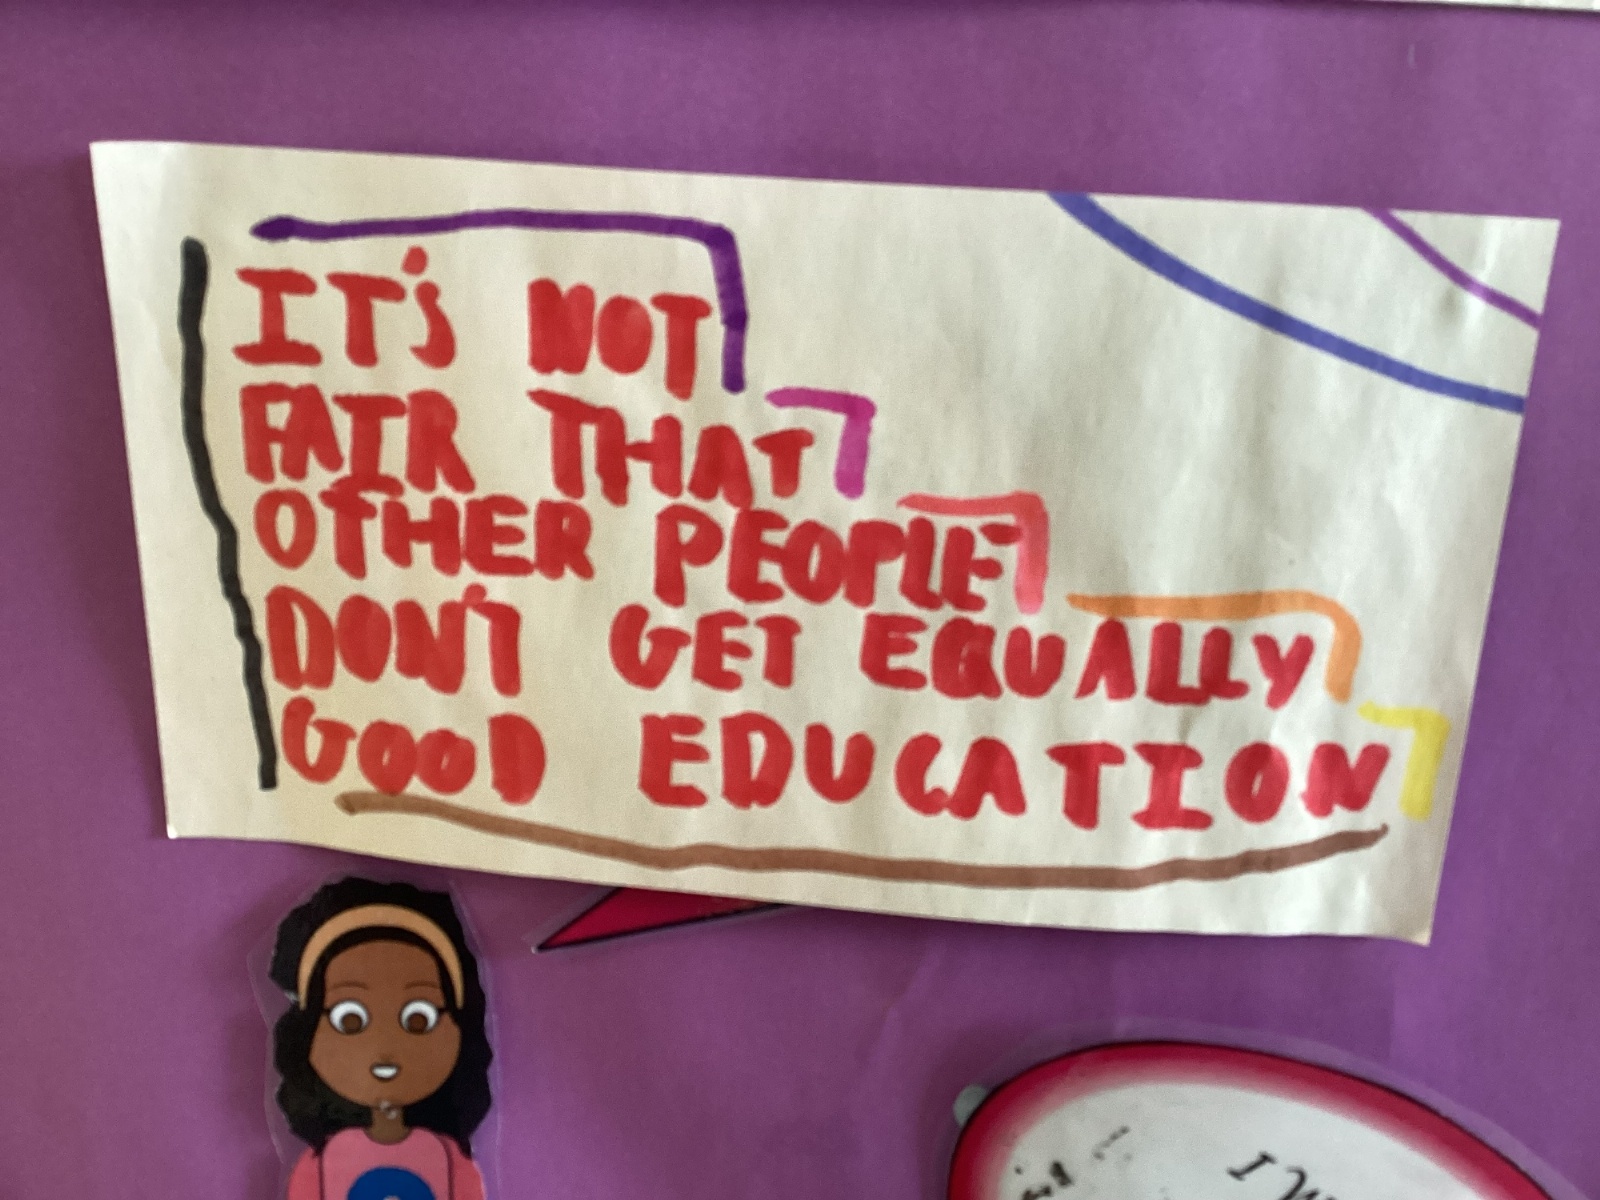 IT'S NOT
FAIR THAT
OTHER PEOPLE
DON'T GET EQUALLY
GOOD EDUCATION
I